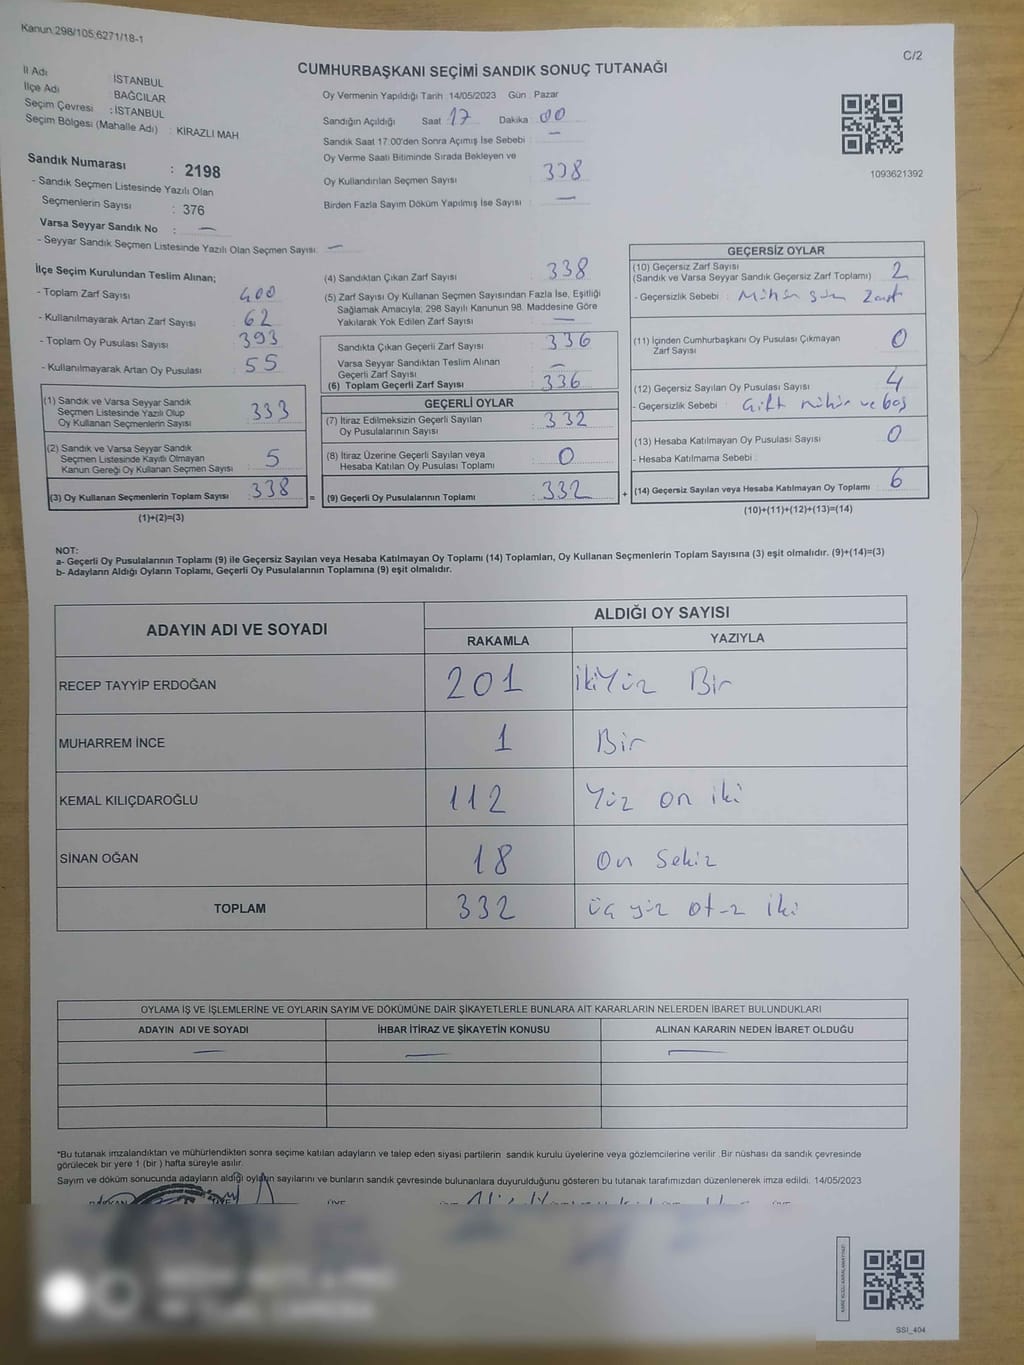 Kanun:298/105;6271/18-1
C/2
CUMHURBAŞKANI SEÇİMİ SANDIK SONUÇ TUTANAĞI
İl Adı İSTANBUL
İlçe Adı BAĞCILAR
Seçim Çevresi : İSTANBUL
Seçim Bölgesi (Mahalle Adı) : KİRAZLI MAH
Oy Vermenin Yapıldığı Tarih 14/05/2023 Gün : Pazar
Sandığın Açıldığı Saat : 17 Dakika 00
Sandık Saat 17:00'den Sonra Açımış İse Sebebi : —
Oy Verme Saati Bitiminde Sırada Bekleyen ve
Oy Kullandırılan Seçmen Sayısı : 338
Birden Fazla Sayım Döküm Yapılmış İse Sayısı : —
1093621392
Sandık Numarası : 2198
- Sandık Seçmen Listesinde Yazılı Olan
Seçmenlerin Sayısı : 376
Varsa Seyyar Sandık No : —
- Seyyar Sandık Seçmen Listesinde Yazılı Olan Seçmen Sayısı: —
İlçe Seçim Kurulundan Teslim Alınan;
- Toplam Zarf Sayısı 400
- Kullanılmayarak Artan Zarf Sayısı : 62
- Toplam Oy Pusulası Sayısı : 393
- Kullanılmayarak Artan Oy Pusulası : 55
(1) Sandık ve Varsa Seyyar Sandık
Seçmen Listesinde Yazılı Olup
Oy Kullanan Seçmenlerin Sayısı : 333
(2) Sandık ve Varsa Seyyar Sandık
Seçmen Listesinde Kayıtlı Olmayan
Kanun Gereği Oy Kullanan Seçmen Sayısı : 5
(3) Oy Kullanan Seçmenlerin Toplam Sayısı : 338 =
(1)+(2)=(3)
(4) Sandıktan Çıkan Zarf Sayısı : 338
(5) Zarf Sayısı Oy Kullanan Seçmen Sayısından Fazla İse, Eşitliği
Sağlamak Amacıyla, 298 Sayılı Kanunun 98. Maddesine Göre
Yakılarak Yok Edilen Zarf Sayısı : —
Sandıkta Çıkan Geçerli Zarf Sayısı : 336
Varsa Seyyar Sandıktan Teslim Alınan
Geçerli Zarf Sayısı : —
(6) Toplam Geçerli Zarf Sayısı : 336
GEÇERLİ OYLAR
(7) İtiraz Edilmeksizin Geçerli Sayılan
Oy Pusulalarının Sayısı : 332
(8) İtiraz Üzerine Geçerli Sayılan veya
Hesaba Katılan Oy Pusulası Toplamı : 0
(9) Geçerli Oy Pusulalarının Toplamı : 332 +
GEÇERSİZ OYLAR
(10) Geçersiz Zarf Sayısı
(Sandık ve Varsa Seyyar Sandık Geçersiz Zarf Toplamı) : 2
- Geçersizlik Sebebi :
(11) İçinden Cumhurbaşkanı Oy Pusulası Çıkmayan
Zarf Sayısı : 0
(12) Geçersiz Sayılan Oy Pusulası Sayısı : 4
- Geçersizlik Sebebi : Çift mühür ve boş
(13) Hesaba Katılmayan Oy Pusulası Sayısı : 0
- Hesaba Katılmama Sebebi :
(14) Geçersiz Sayılan veya Hesaba Katılmayan Oy Toplamı : 6
(10)+(11)+(12)+(13)=(14)
NOT:
a- Geçerli Oy Pusulalarının Toplamı (9) ile Geçersiz Sayılan veya Hesaba Katılmayan Oy Toplamı (14) Toplamları, Oy Kullanan Seçmenlerin Toplam Sayısına (3) eşit olmalıdır. (9)+(14)=(3)
b- Adayların Aldığı Oyların Toplamı, Geçerli Oy Pusulalarının Toplamına (9) eşit olmalıdır.
ADAYIN ADI VE SOYADI ALDIĞI OY SAYISI
RAKAMLA YAZIYLA
RECEP TAYYİP ERDOĞAN 201 ikiyüz Bir
MUHARREM İNCE 1 Bir
KEMAL KILIÇDAROĞLU 112 Yüz on iki
SİNAN OĞAN 18 On Sekiz
TOPLAM 332 üç yüz otuz iki
OYLAMA İŞ VE İŞLEMLERİNE VE OYLARIN SAYIM VE DÖKÜMÜNE DAİR ŞİKAYETLERLE BUNLARA AİT KARARLARIN NELERDEN İBARET BULUNDUKLARI
ADAYIN ADI VE SOYADI İHBAR İTİRAZ VE ŞİKAYETİN KONUSU ALINAN KARARIN NEDEN İBARET OLDUĞU
— — —
*Bu tutanak imzalandıktan ve mühürlendikten sonra seçime katılan adayların ve talep eden siyasi partilerin sandık kurulu üyelerine veya gözlemcilerine verilir .Bir nüshası da sandık çevresinde
görülecek bir yere 1 (bir ) hafta süreyle asılır.
Sayım ve döküm sonucunda adayların aldığı oyların sayılarını ve bunların sandık çevresinde bulunanlara duyurulduğunu gösteren bu tutanak tarafımızdan düzenlenerek imza edildi. 14/05/2023
SSI_404